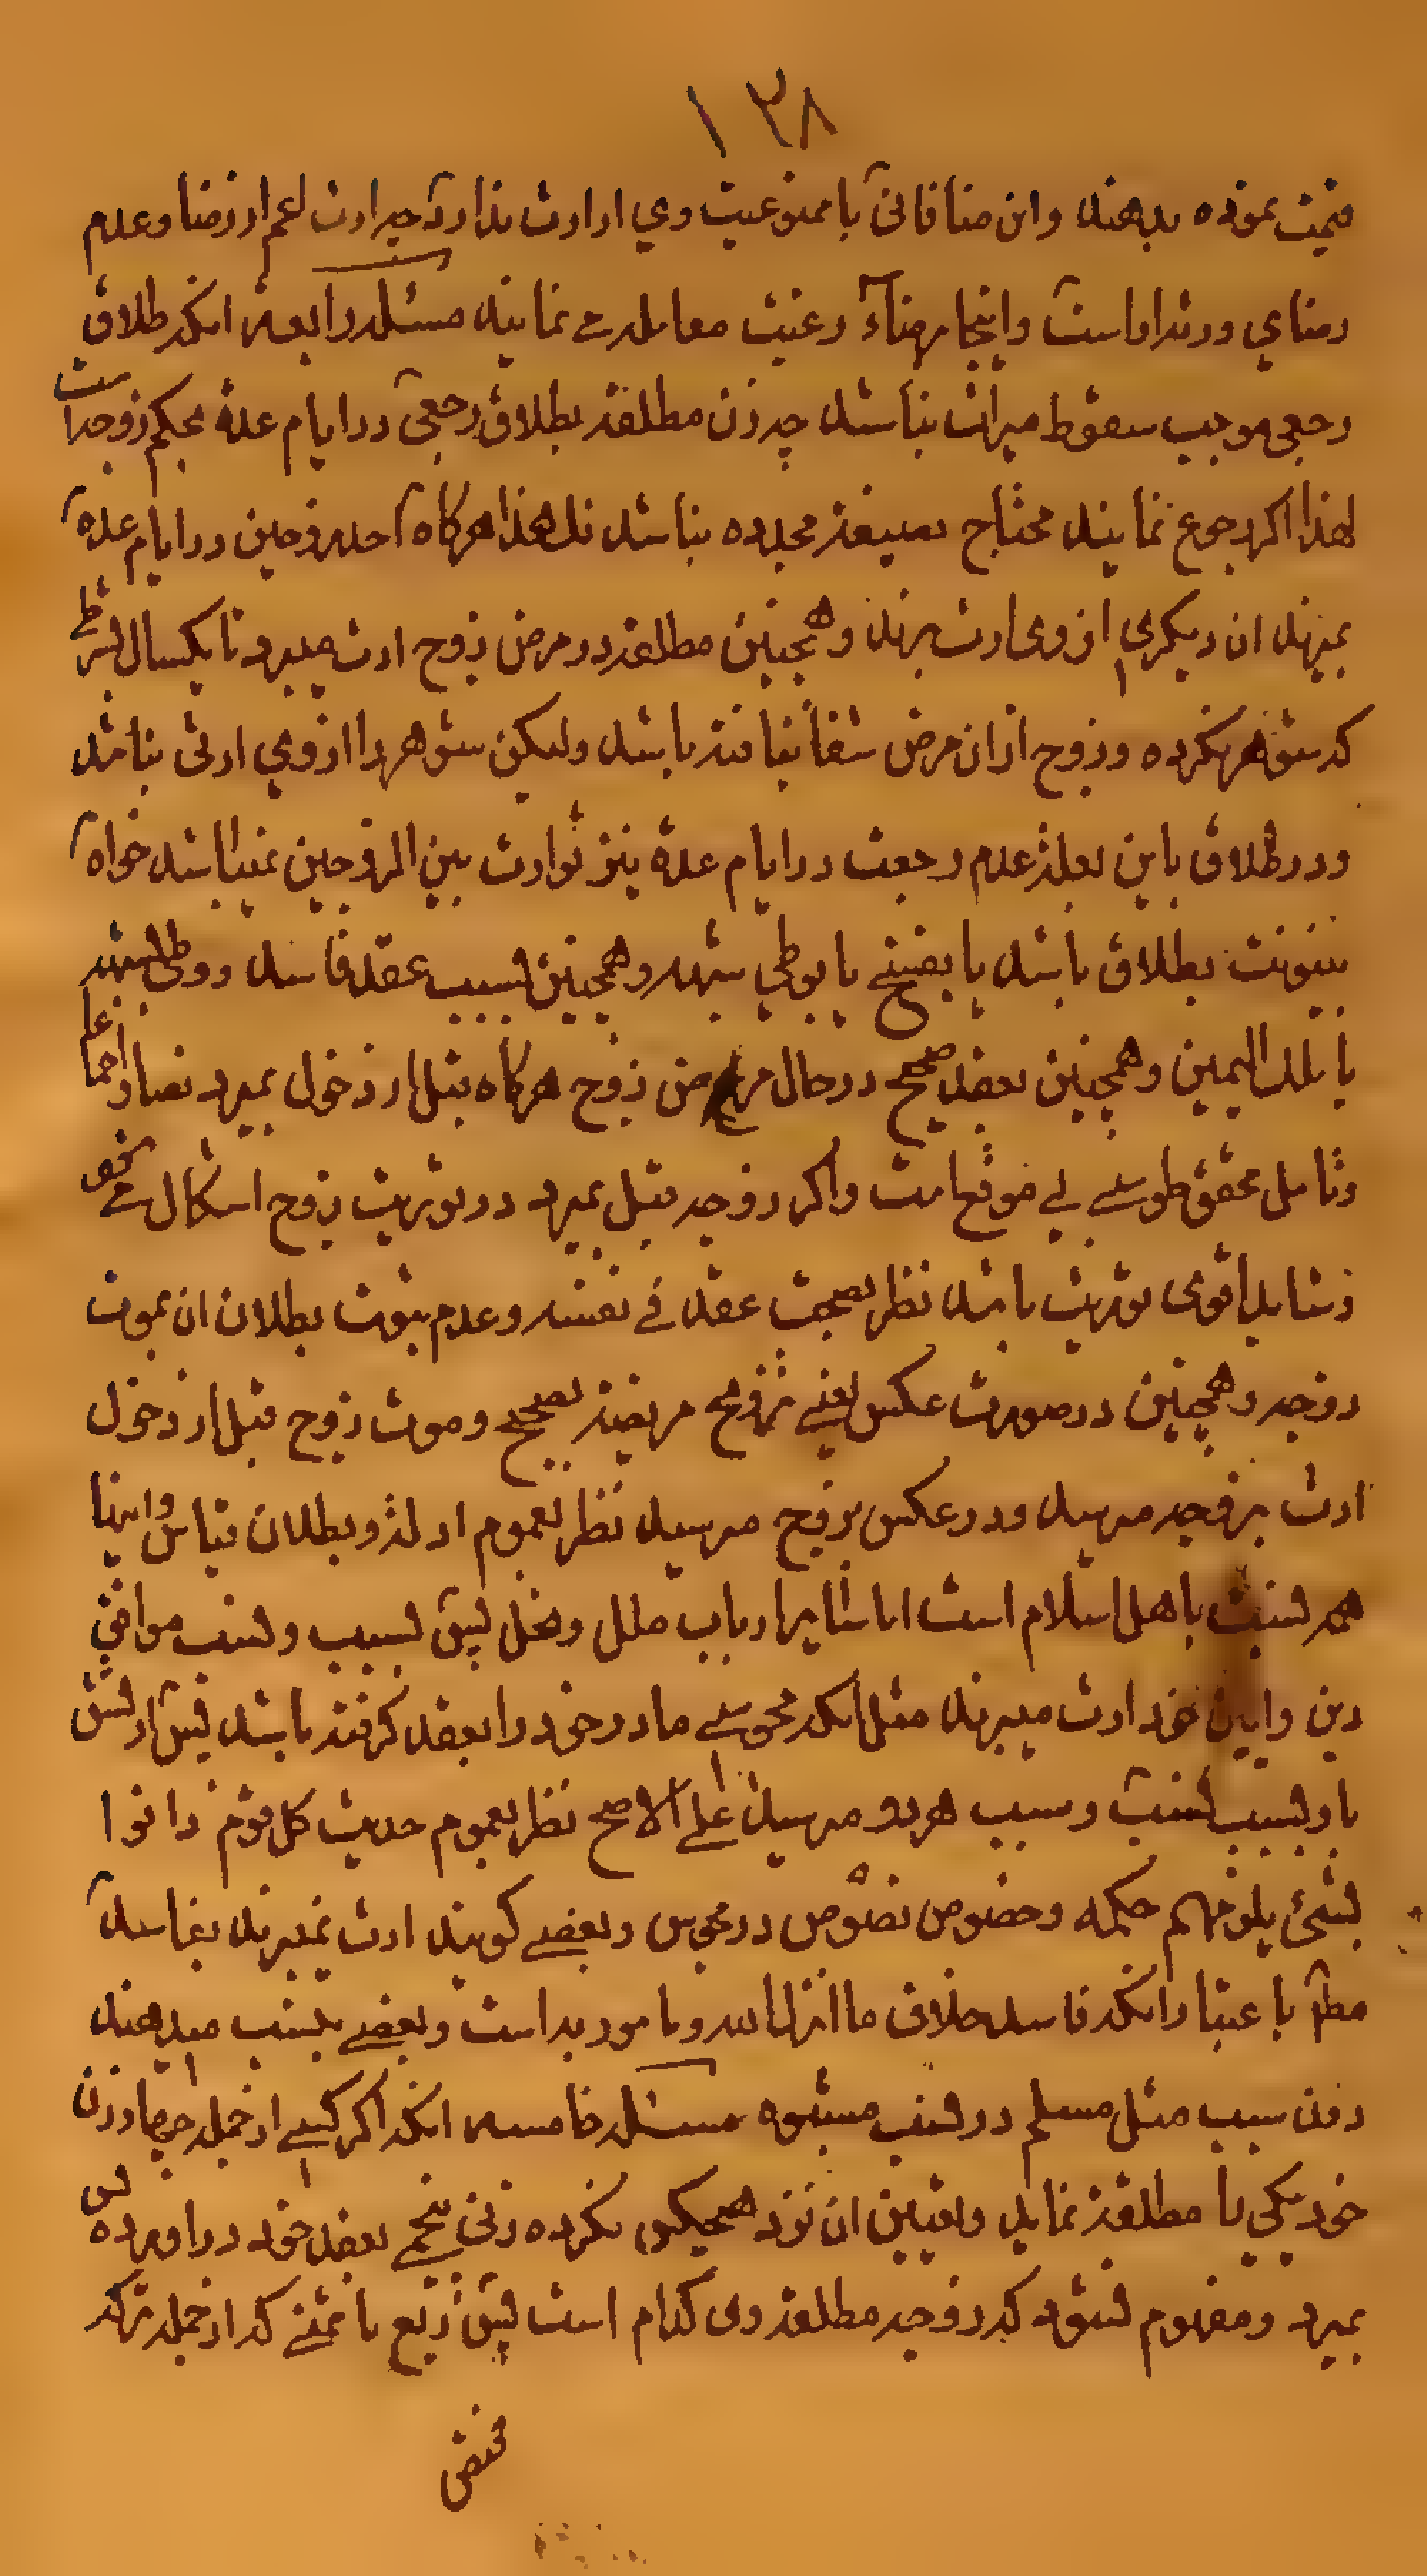 ۱۲۸
قیمت نموده بدهند و این منافاتی با ممنوعیت وی از ارث ندارد چه ارث اعم از رضا و عدم
رضای ورثه است و اینجا برضاء و رغبت معامله می نمایند مسئله رابعه انکه طلاق
رجعی موجب سقوط میراث نباشد چه زن مطلقه بطلاق رجعی در ایام عدة بحکم زوجه است
لهذا اکر رجوع نمایند محتاج بصیغه مجدده نباشد فلهذا هرکاه احد زوجین در ایام عدة
بمیرند ان دیکری از وی ارث برند و همچنین مطلقه در مرض زوج ارث میبرد تا یکسال بشرطی
که شوهر نکرده و زوج ازان مرض شفا نیافته باشد ولیکن شوهر را از وی ارثی نباشد
و در طلاق باین بعلة عدم رجعت در ایام عدة نیز توارث بین الزوجین نمیباشد خواه
بینونت بطلاق باشد یا بفسخی یا بوطی شبهه و همچنین بسبب عقد فاسد و وطی بشبهه
یا بملک الیمین و همچنین بعقد صحیح در حال مرض زوج هرکاه قبل از دخول بمیرد نصا و اجماعا
و تامل محقق طوسی بی موقع است و اکر زوجه قبل بمیرد در توریث زوج اشکال است
و شاید اقوی توریث باشد نظر بصحت عقد فی نفسه و عدم ثبوت بطلان ان بموت
زوجه و همچنین در صورت عکس یعنی تزویج مریضه بصحیح و موت زوج قبل از دخول
ارث بزوجه میرسد و در عکس بزوج میرسد نظر بعموم ادله و بطلان قیاس و اینها
همه نسبت باهل اسلام است اما سایر ارباب ملل و نحل پس بسبب و نسب موافق
دین و ایین خود ارث میبرند مثل انکه مجوسی مادر خود را بعقد کرفته باشد پس ارثش
باو بسبب نسبت و سبب هر دو میرسد علی الاصح نظر بعموم حدیث کل قوم دانوا
بشئ یلزمهم حکمه و خصوص نصوص در مجوس و بعضی کویند ارث نمیبرند بفاسد
مطلقا باعتبار انکه فاسد خلاف ما انزل الله و مامور به است و بعضی بنسب میدهند
دون سبب مثل مسلم در نسب مشتبه مسئله خامسه انکه اکر کسی از جمله چهار زن
خود یکی را مطلقه نماید و تعیین ان نزد هیچکس نکرده زنی پنجمی بعقد خود دراورده پس
بمیرد و مفهوم نشود که زوجه مطلقه وی کدام است پس ربع یا ثمنی که از جمله ترکه
مختص